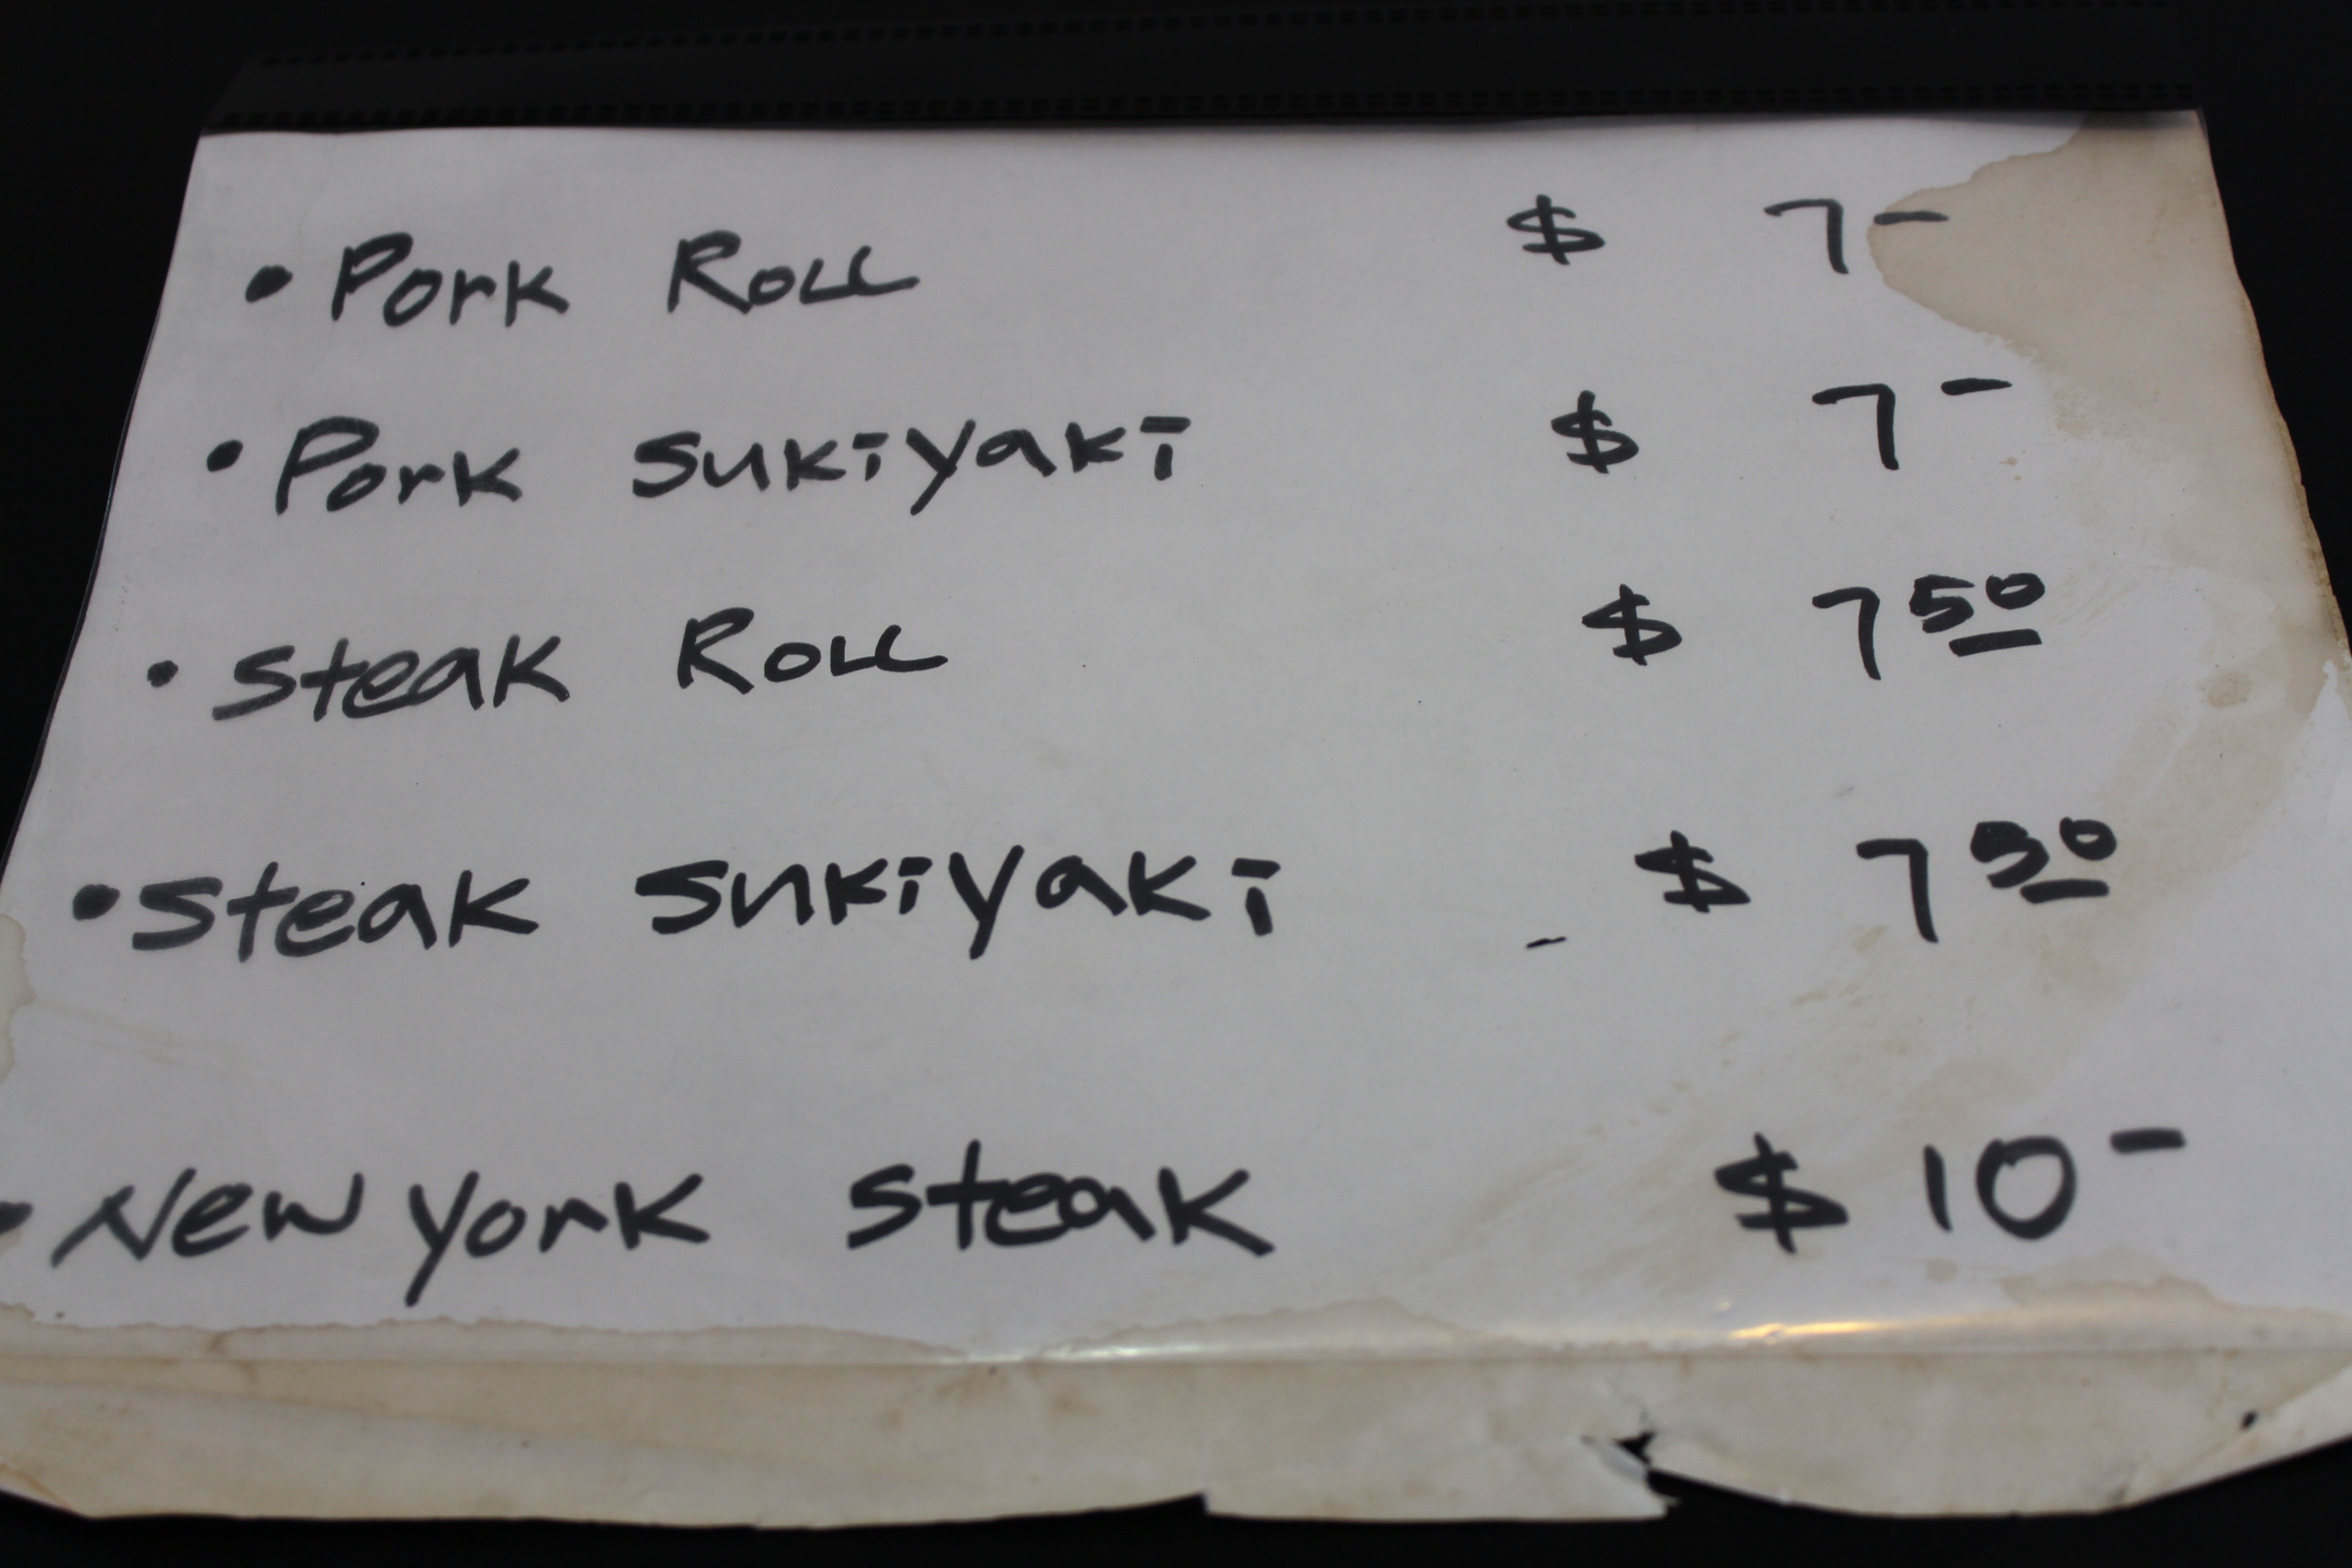 • Pork Roll $ 7-
• Pork Sukiyaki $ 7-
• Steak Roll $ 7 50
• Steak Sukiyaki $ 7 50
• New York Steak $ 10-